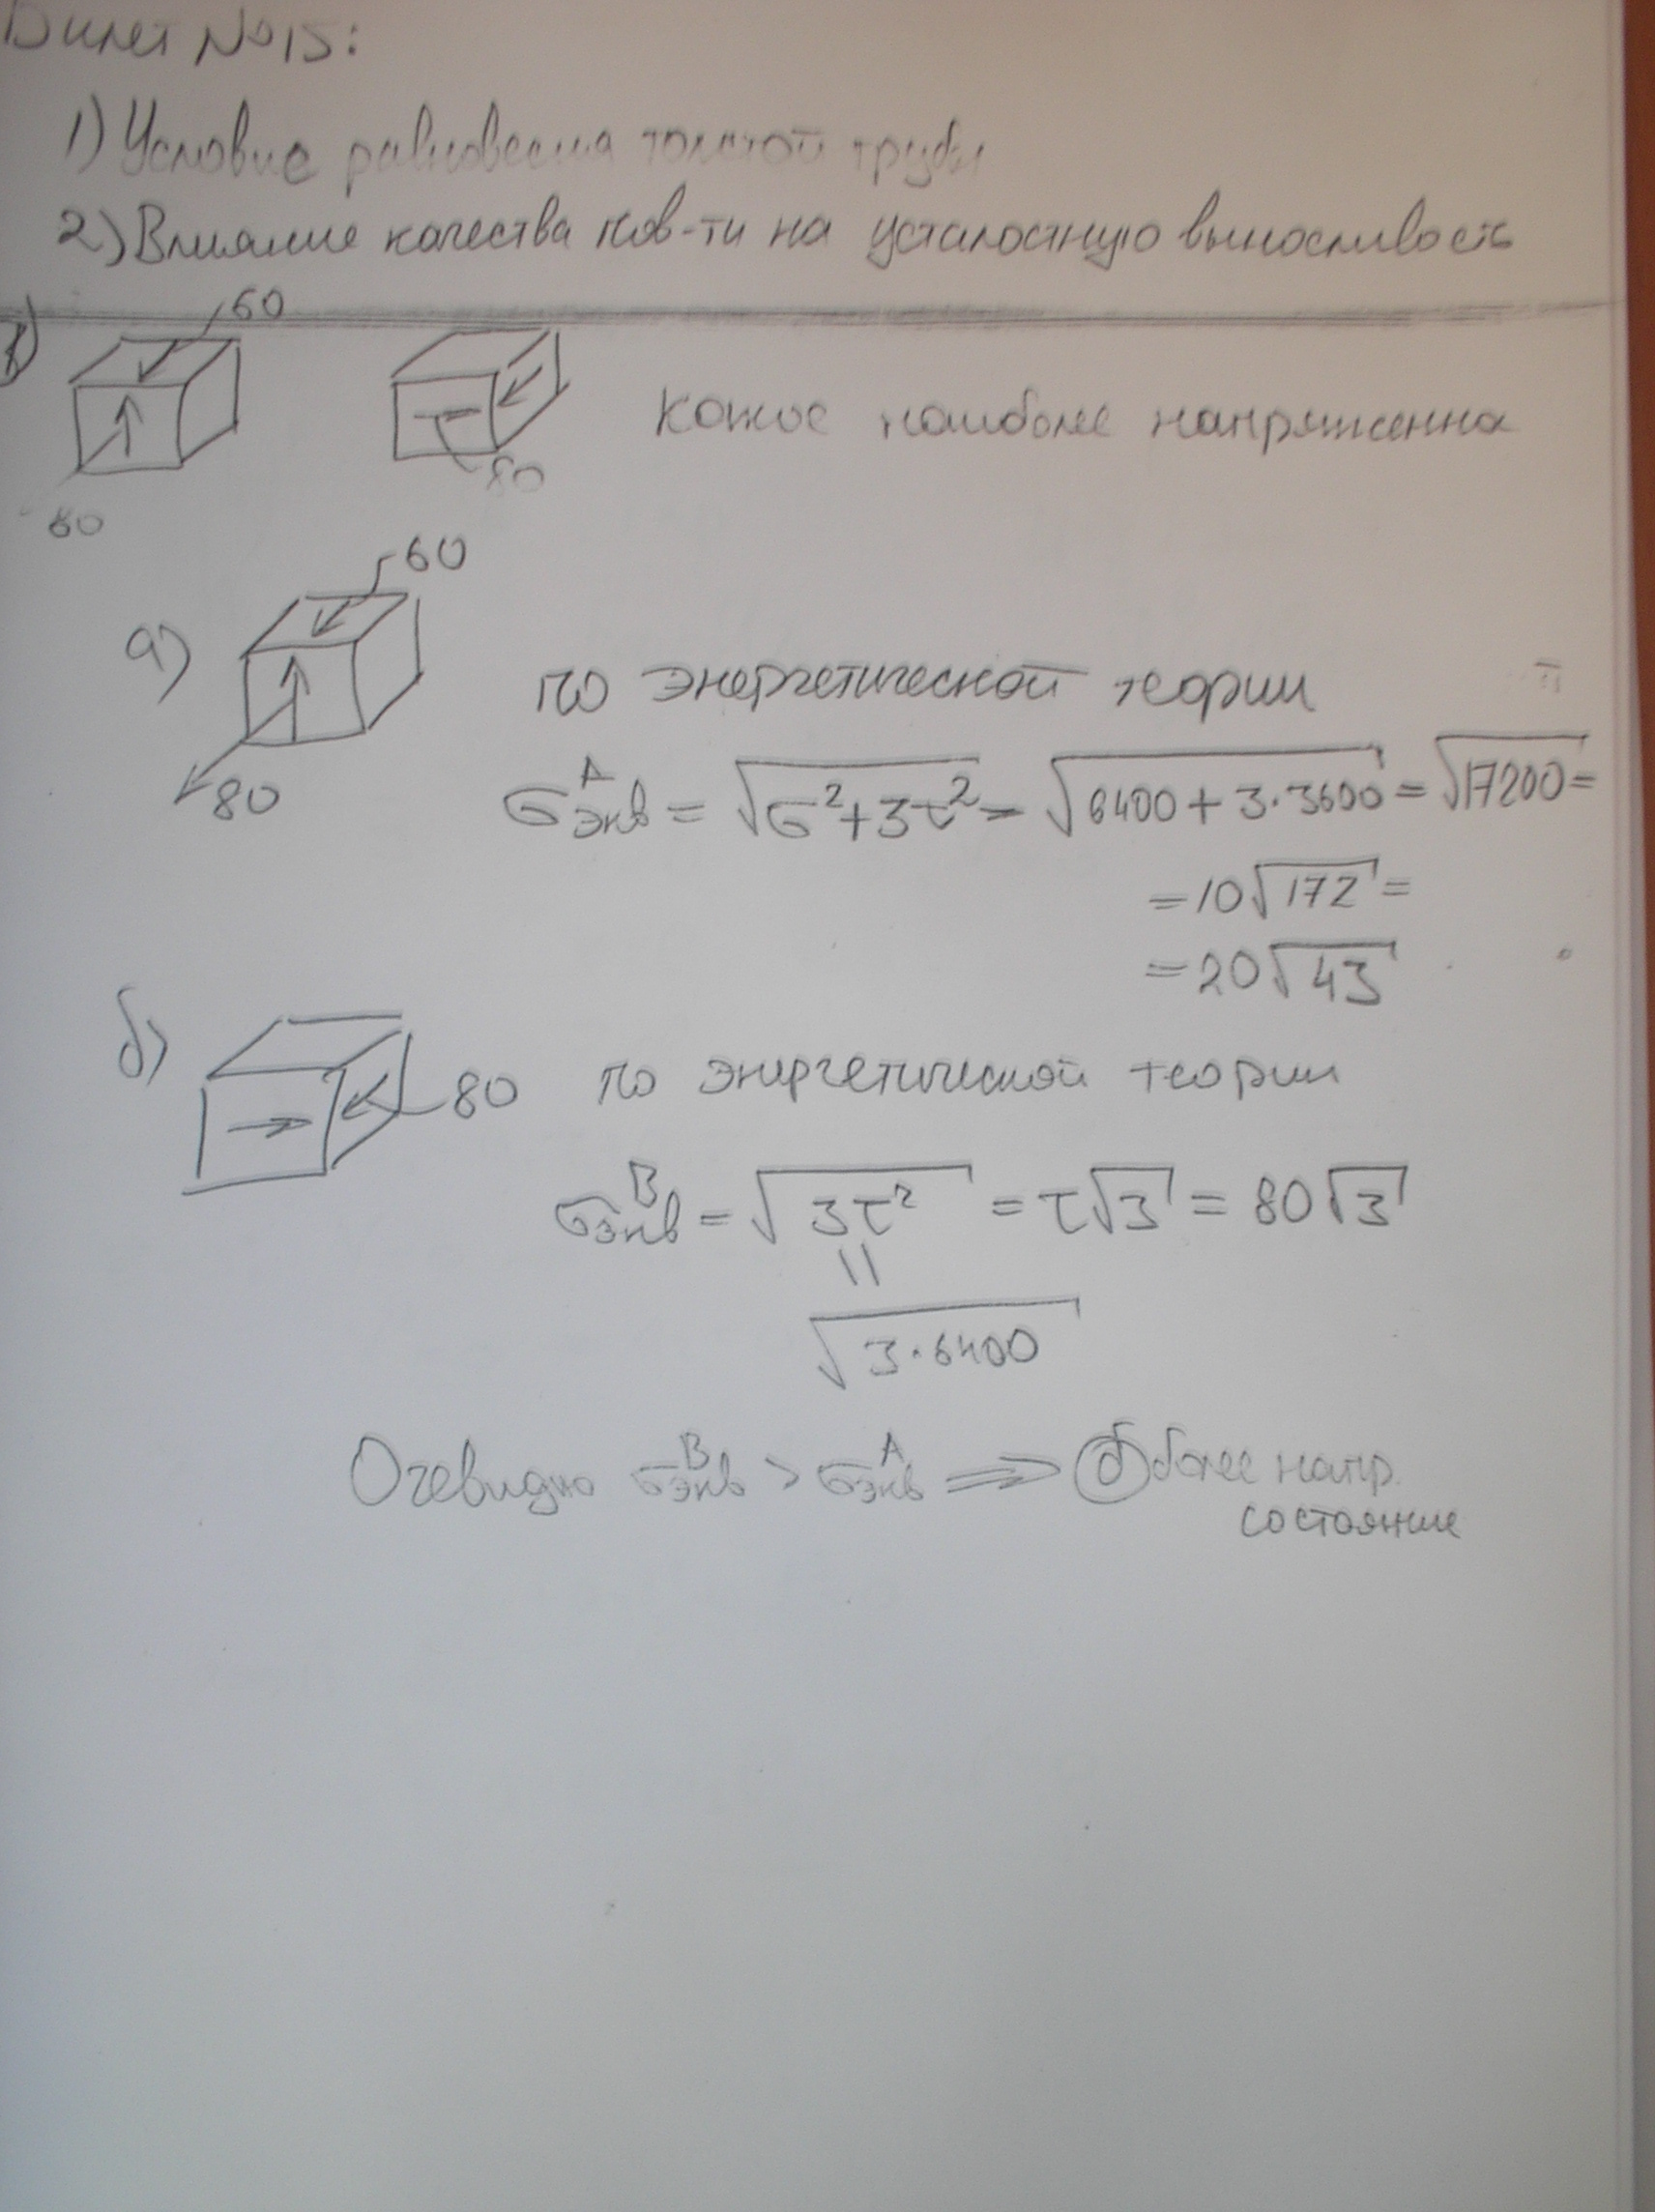 Билет №15:
1) Условие равновесия толстой трубы
2) Влияние качества пов-ти на усталостную выносливость
60
80
80
Какое наиболее напряженна
а)
60
80
по энергетической теории
σ^A_экв = √(σ²+3τ²) = √(6400+3·3600) = √17200 =
= 10√172 =
= 20√43
б)
80
по энергетической теории
σ^B_экв = √(3τ²) = τ√3 = 80√3
||
√(3·6400)
Очевидно σ^B_экв > σ^A_экв ⟹ б более напр.
состояние